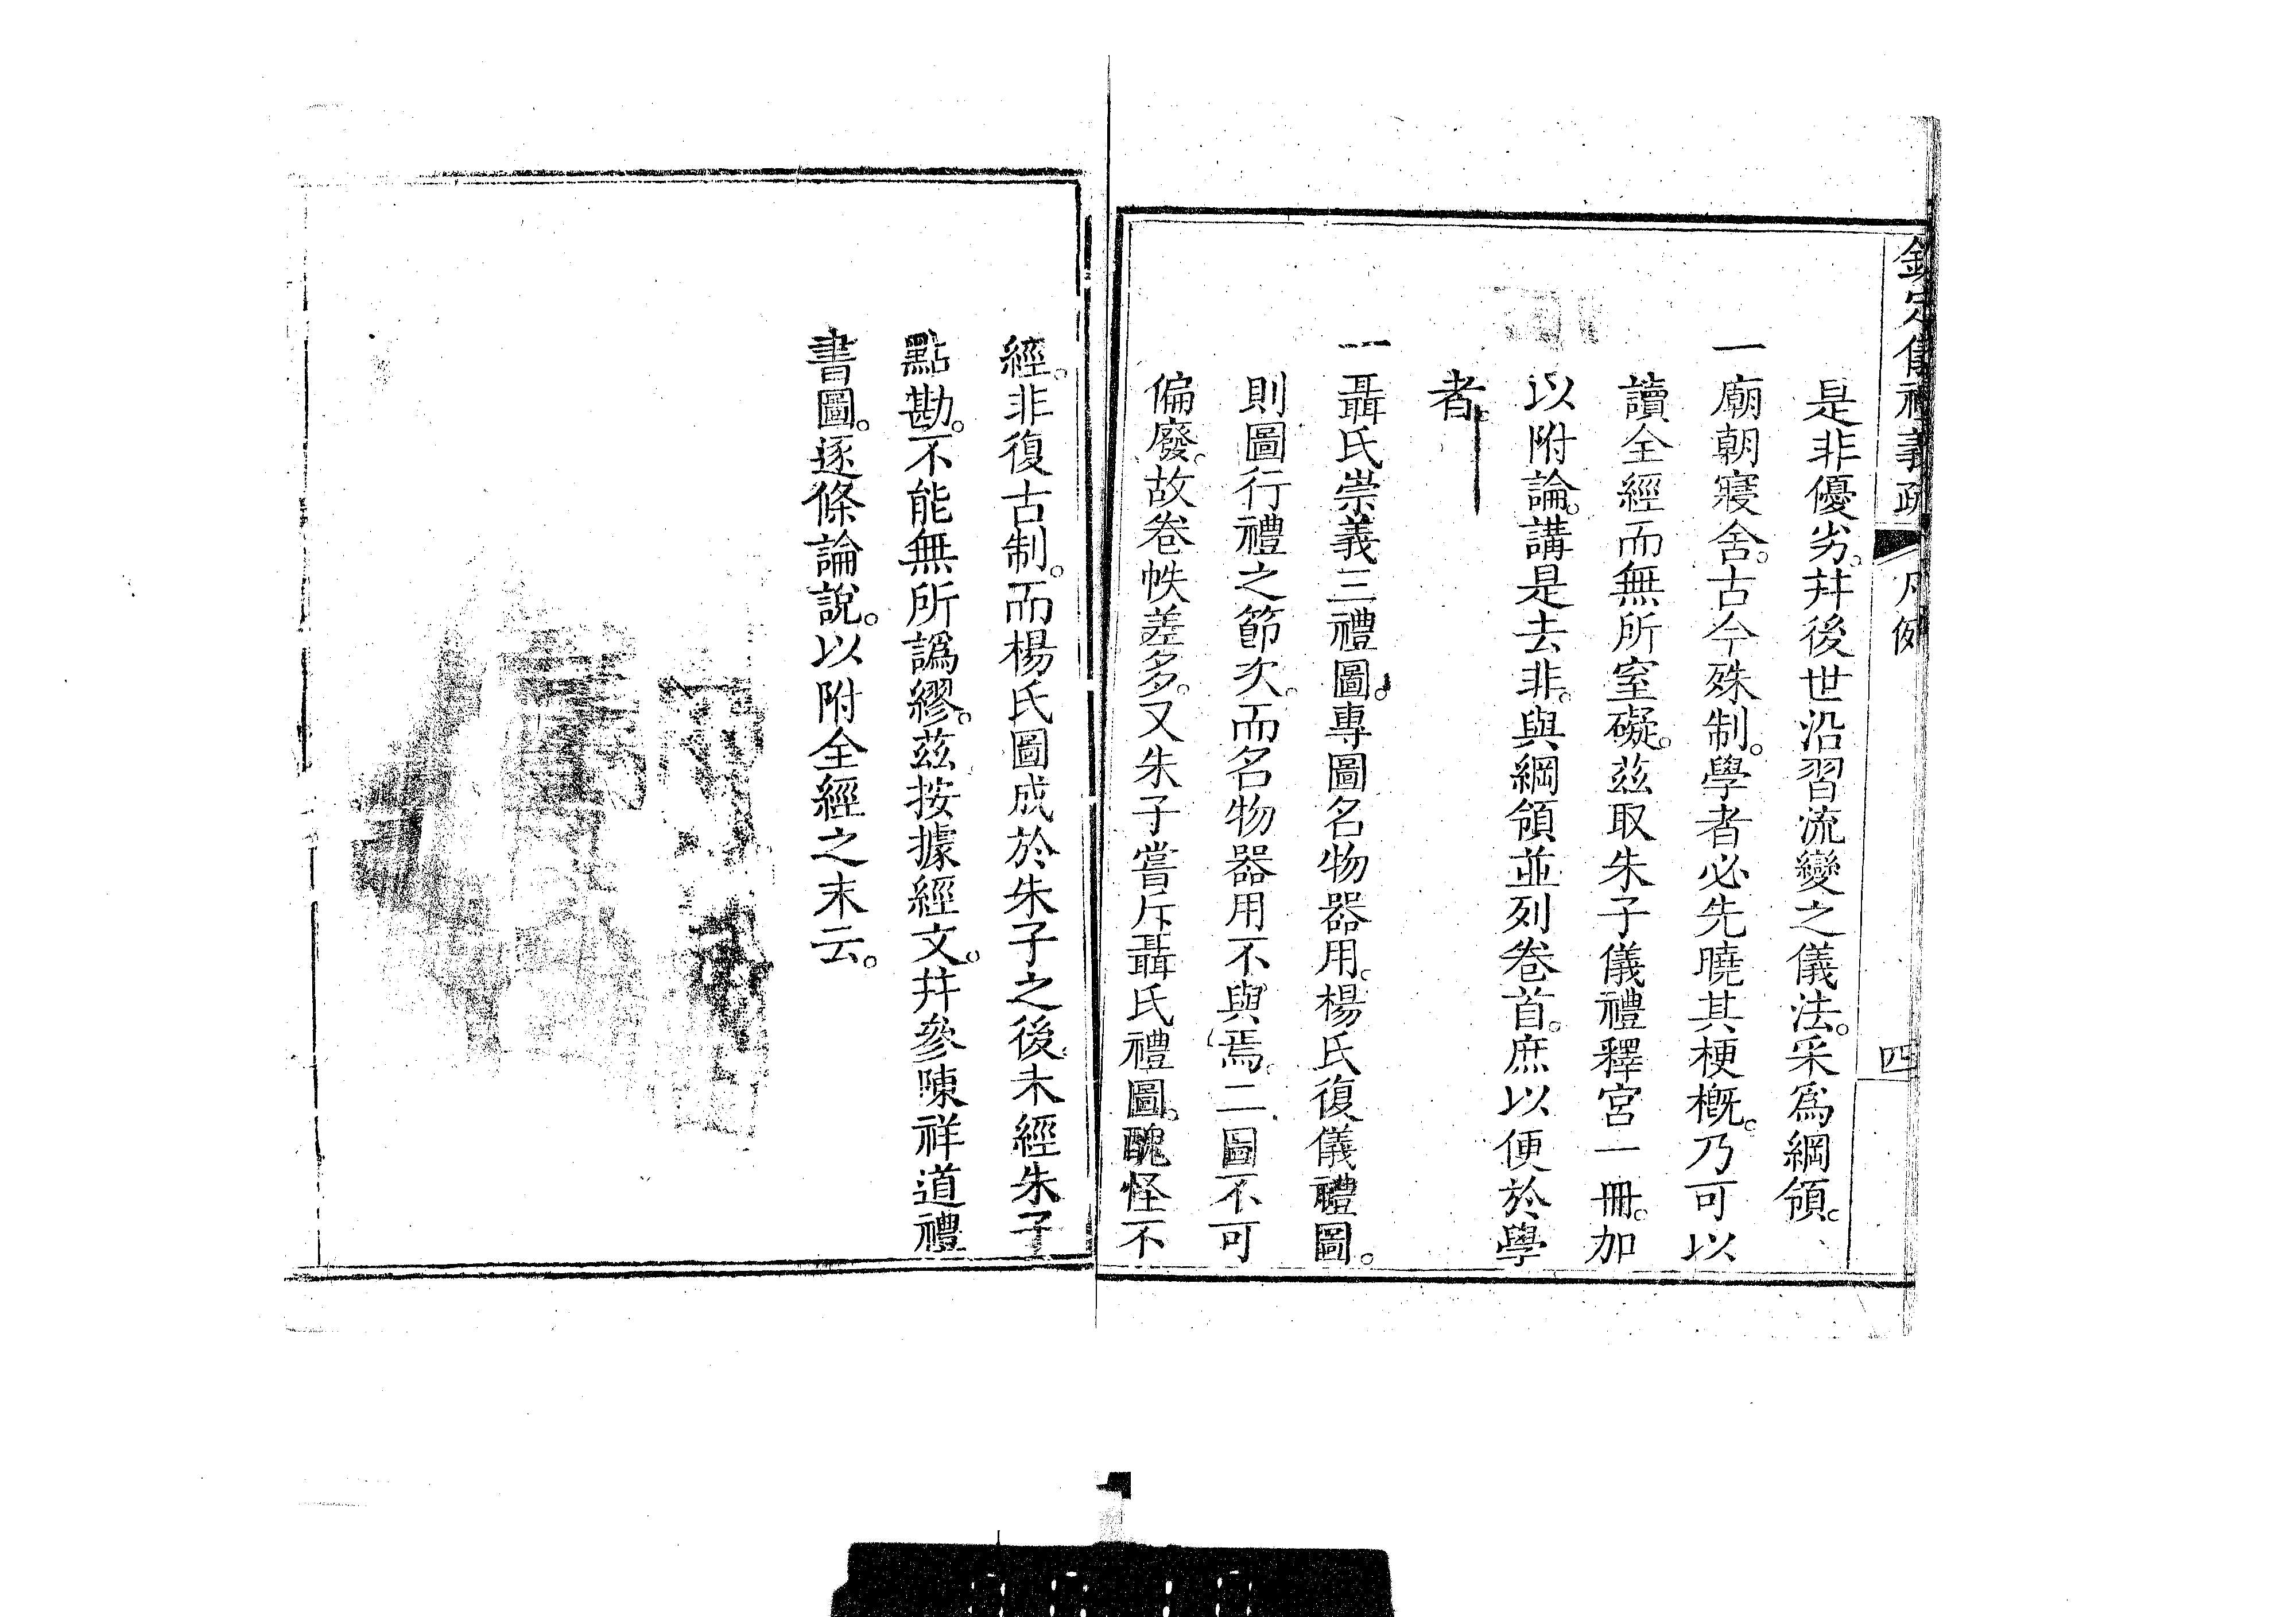 欽定儀禮義疏 凡例 四
是非優劣。幷後世沿習流變之儀法。采爲綱領。
一廟朝寢舍。古今殊制。學者必先曉其梗槪。乃可以
讀全經而無所窒礙。茲取朱子儀禮釋宮一冊。加
以附論。講是去非。與綱領並列卷首。庶以便於學
者。
一聶氏崇義三禮圖。專圖名物器用。楊氏復儀禮圖。
則圖行禮之節次。而名物器用不與焉。二圖不可
偏廢。故卷帙差多。又朱子嘗斥聶氏禮圖。醜怪不
經。非復古制。而楊氏圖成於朱子之後。未經朱子
點勘。不能無所譌繆。茲按據經文。幷參陳祥道禮
書圖。逐條論說。以附全經之末云。